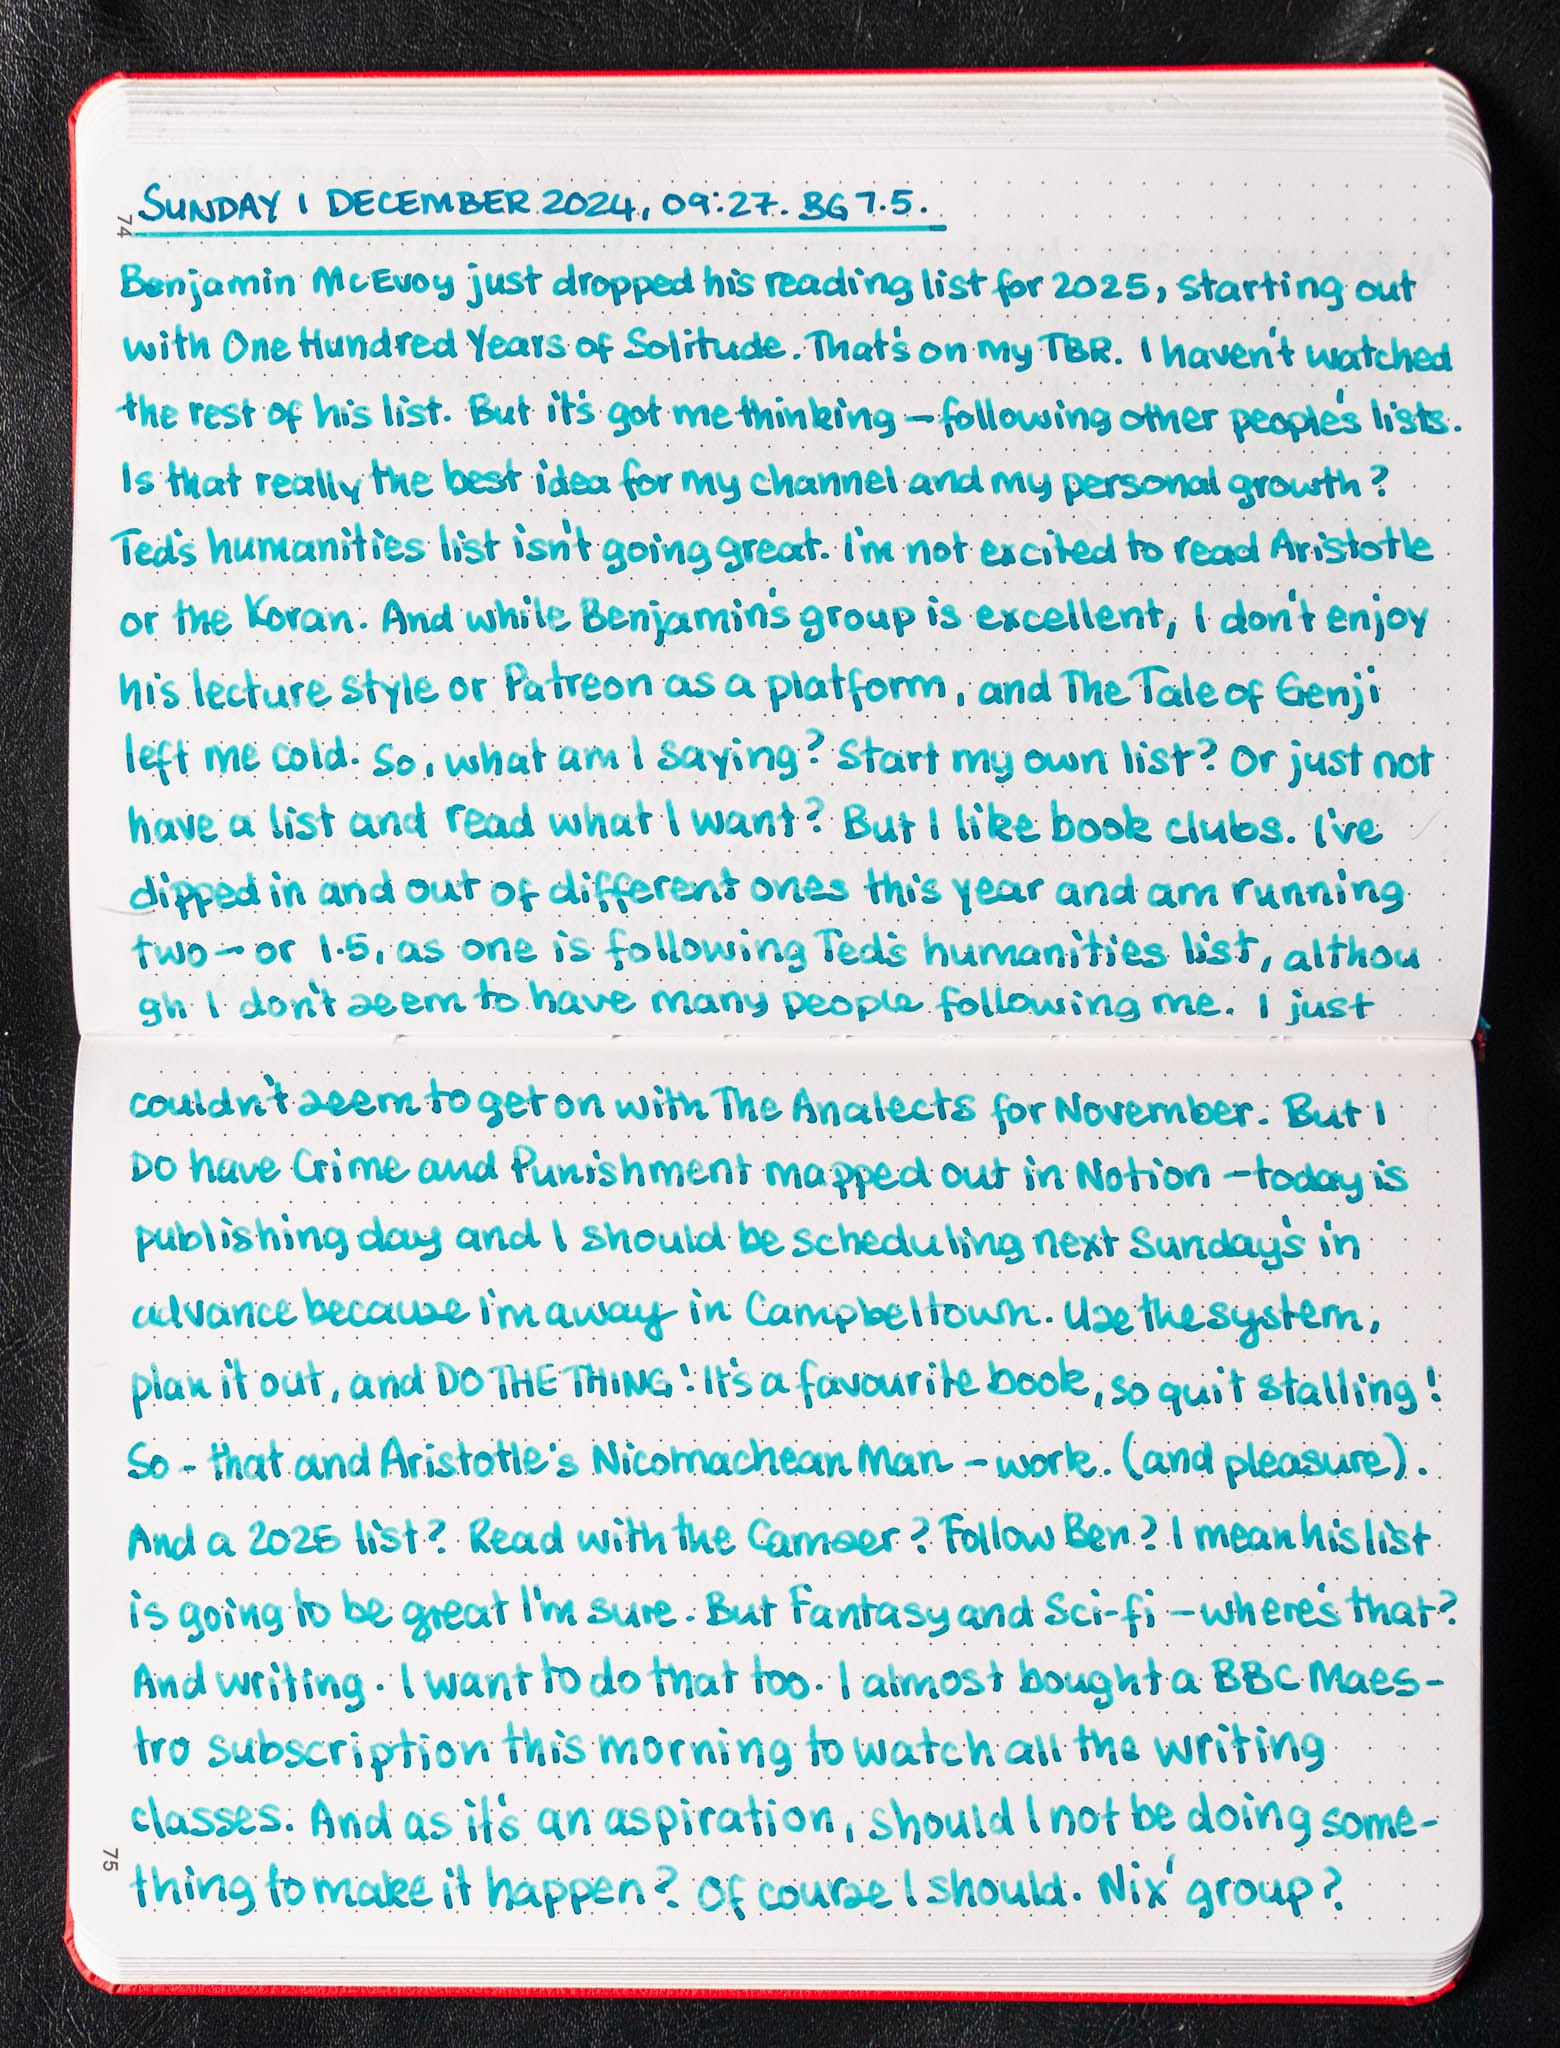 74
SUNDAY 1 DECEMBER 2024, 09:27. BG 7.5.
Benjamin McEvoy just dropped his reading list for 2025, starting out
with One Hundred Years of Solitude. That's on my TBR. I haven't watched
the rest of his list. But it's got me thinking – following other people's lists.
Is that really the best idea for my channel and my personal growth?
Ted's humanities list isn't going great. I'm not excited to read Aristotle
or the Koran. And while Benjamin's group is excellent, I don't enjoy
his lecture style or Patreon as a platform, and The Tale of Genji
left me cold. So, what am I saying? Start my own list? Or just not
have a list and read what I want? But I like book clubs. I've
dipped in and out of different ones this year and am running
two – or 1.5, as one is following Ted's humanities list, althou
gh I don't seem to have many people following me. I just
couldn't seem to get on with The Analects for November. But I
DO have Crime and Punishment mapped out in Notion – today is
publishing day and I should be scheduling next Sunday's in
advance because I'm away in Campbeltown. Use the system,
plan it out, and DO THE THING! It's a favourite book, so quit stalling!
So – that and Aristotle's Nicomachean Man – work. (and pleasure).
And a 2025 list? Read with the Camser? Follow Ben? I mean his list
is going to be great I'm sure. But Fantasy and Sci-fi – where's that?
And writing. I want to do that too. I almost bought a BBC Maes-
tro subscription this morning to watch all the writing
classes. And as it's an aspiration, should I not be doing some-
thing to make it happen? Of course I should. Nix' group?
75